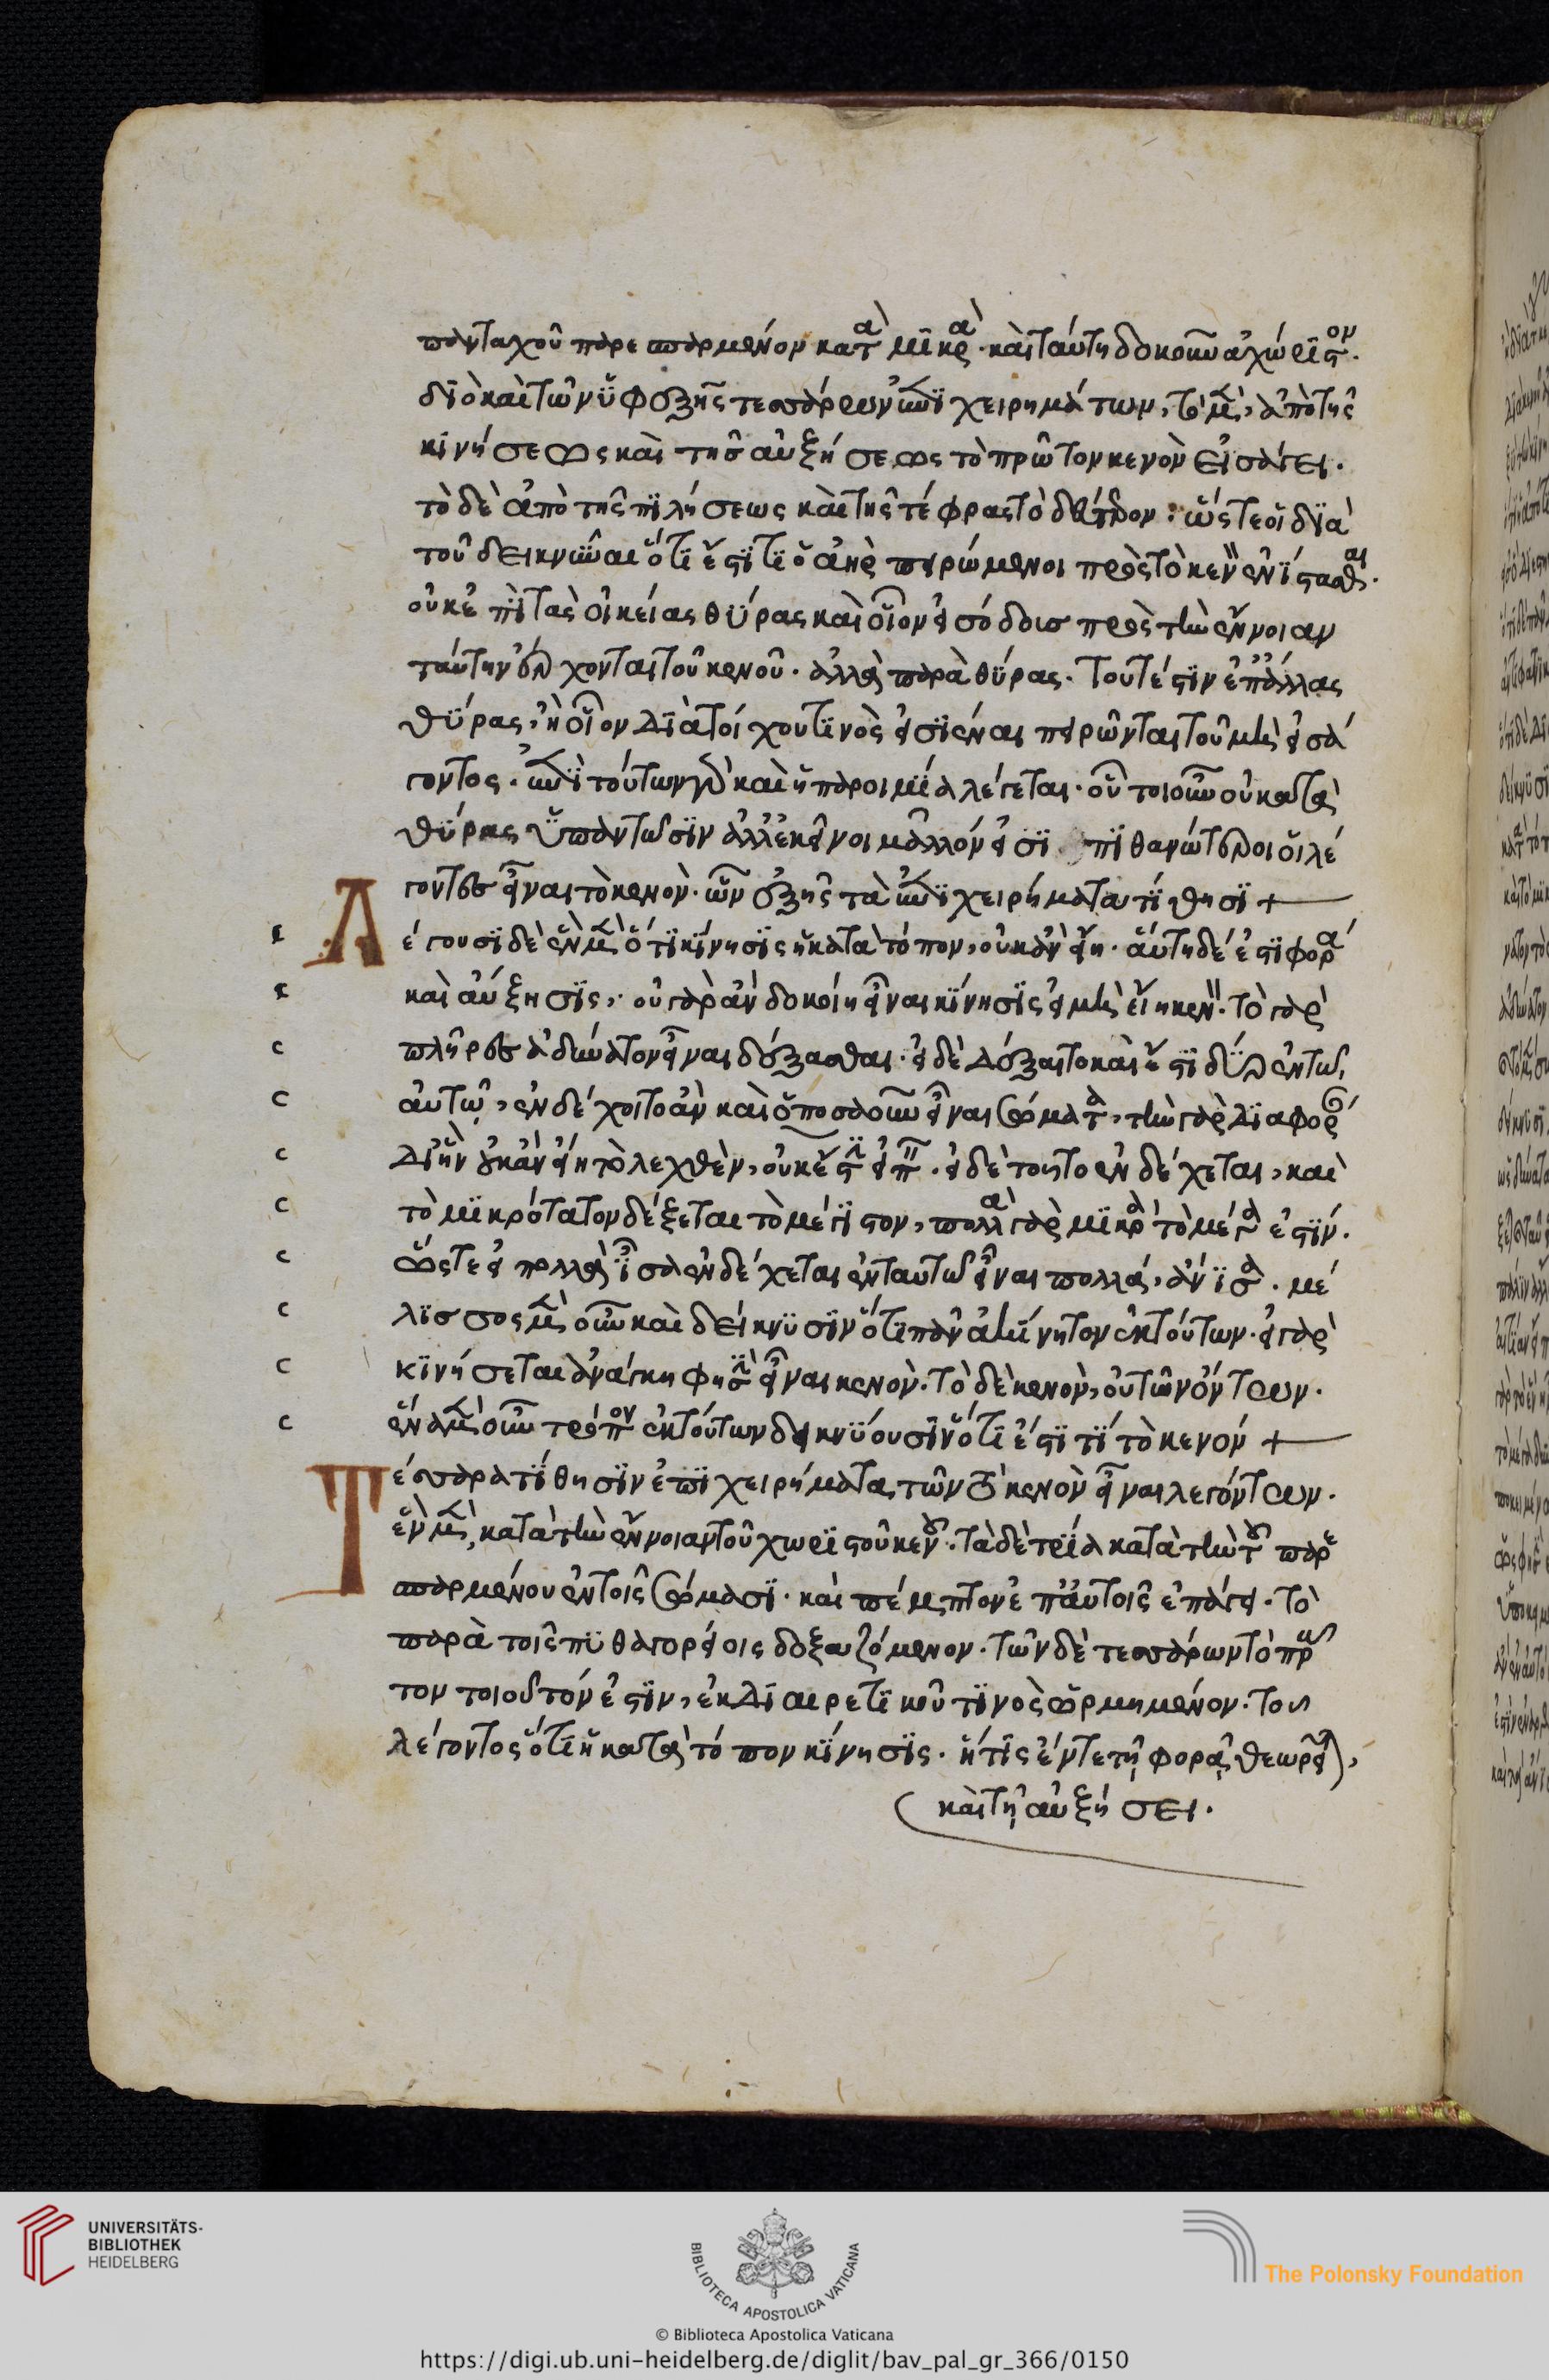 πανταχοῦ παρεσπαρμένον κατὰ μικρὰ· καὶ ταύτη δοκοῦν ἀχώριστον.
διὸ καὶ τῶν ὑφ ἑξῆς τεσσάρων ἐπιχειρημάτων, τὸ μὲν, ἀπὸ τῆς
κινήσεως καὶ τῆς αὐξήσεως τὸ πρῶτον κενὸν εἰσάγει.
τὸ δὲ ἀπὸ τῆς πιλήσεως καὶ τῆς τέφρας τὸ δεύτερον· ὥστε οἱ διὰ
τοῦ δεικνύναι ὅτι ἔστι τι ὁ ἀὴρ πειρώμενοι πρὸς τὸ κενὸν ἐνίστασθαι.
οὐκ ἐπὶ τὰς οἰκείας θύρας καὶ οἷον εἰσόδοις πρὸς τὴν ἔννοιαν
ταύτην ἔρχονται τοῦ κενοῦ. ἀλλὰ παρὰ θύρας. τουτέστιν ἐπ ἄλλας
θύρας, ἢ οἷον διὰ τοίχου τινὸς εἰσιέναι πειρῶνται τοῦ μὴ εἰσά
γοντος. ἐπὶ τούτων γὰρ καὶ ἡ παροιμία λέγεται. οὗτοι οὖν οὐ κατὰ
θύρας ὑπαντῶσιν ἀλλ ἐκεῖνοι μᾶλλόν εἰσι πιθανώτεροι οἱ λέ
γοντες εἶναι τὸ κενὸν. ὧν ἑξῆς τὰ ἐπιχειρήματα τίθησι +
Λέγουσι δὲ ἓν μὲν ὅτι κίνησις ἡ κατὰ τόπον, οὐκ ἂν εἴη. αὕτη δέ ἐστι φορά
καὶ αὔξησις, οὐ γὰρ ἂν δοκοίη εἶναι κίνησις εἰ μὴ εἴη κενὸν. τὸ γὰρ
πλῆρες ἀδύνατον εἶναι δέξασθαι. εἰ δὲ δέξαιτο καὶ ἔσται δύο ἐν τῶ
αὐτῶ, ἐνδέχοιτο ἂν καὶ ὁποσαοῦν εἶναι σώματα, τὴν γὰρ διαφορὰν
δι ἣν οὐκ ἂν εἴη τὸ λεχθὲν, οὐκ ἔστιν εἰπεῖν. εἰ δὲ τοῦτο ἐνδέχεται, καὶ
τὸ μικρότατον δέξεται τὸ μέγιστον, πολλὰ γὰρ μικρὰ τὸ μέγα ἐστίν.
ὥστε εἰ πολλὰ ἴσα ἐνδέχεται ἐν ταυτῶ εἶναι πολλά, ἄνισα. μέ
λισσος μὲν οὖν καὶ δείκνυσιν ὅτι πᾶν ἀκίνητον ἐκ τούτων. εἰ γὰρ
κινήσεται ἀνάγκη φησὶν εἶναι κενὸν. τὸ δὲ κενὸν, οὐ τῶν ὄντων.
ἕνα μὲν οὖν τρόπον ἐκ τούτων δεικνύουσιν ὅτι ἐστί τι τὸ κενόν +
Τέσσαρα τίθησιν ἐπιχειρήματα, τῶν τὸ κενὸν εἶναι λεγόντων.
ἓν μὲν, κατὰ τὴν ἔννοιαν τοῦ χωριστοῦ κενοῦ. τὰ δὲ τρία κατὰ τὴν τοῦ παρε
σπαρμένου ἐν τοῖς σώμασι. καὶ πέμπτον ἐπ αὐτοῖς ἐπάγει. τὸ
παρὰ τοῖς πυθαγορείοις δοξαζόμενον. τῶν δὲ τεσσάρων τὸ πρῶ
τον τοιοῦτόν ἐστιν, ἐκ διαιρετικοῦ τινὸς ὡρμημένον. τοῦ
λέγοντος ὅτι ἡ κατὰ τόπον κίνησις. ἥτις ἔν τε τῆ φορᾶ θεωρεῖται,
καὶ τῆ αὐξήσει.
UNIVERSITÄTS-
BIBLIOTHEK
HEIDELBERG
BIBLIOTECA APOSTOLICA VATICANA
The Polonsky Foundation
© Biblioteca Apostolica Vaticana
https://digi.ub.uni-heidelberg.de/diglit/bav_pal_gr_366/0150